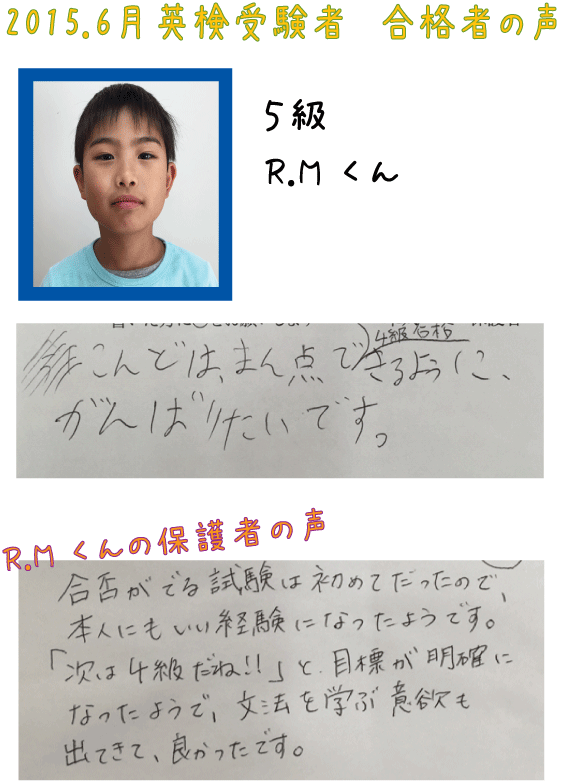 2015.6月英検受験者　合格者の声
5級
R.Mくん
4級合格
こんどは、まん点できるように、
がんばりたいです。
R.Mくんの保護者の声
合否がでる試験は初めてだったので、
本人にもいい経験になったようです。
「次は4級だね!!」と、目標が明確に
なったようで、文法を学ぶ意欲も
出てきて、良かったです。